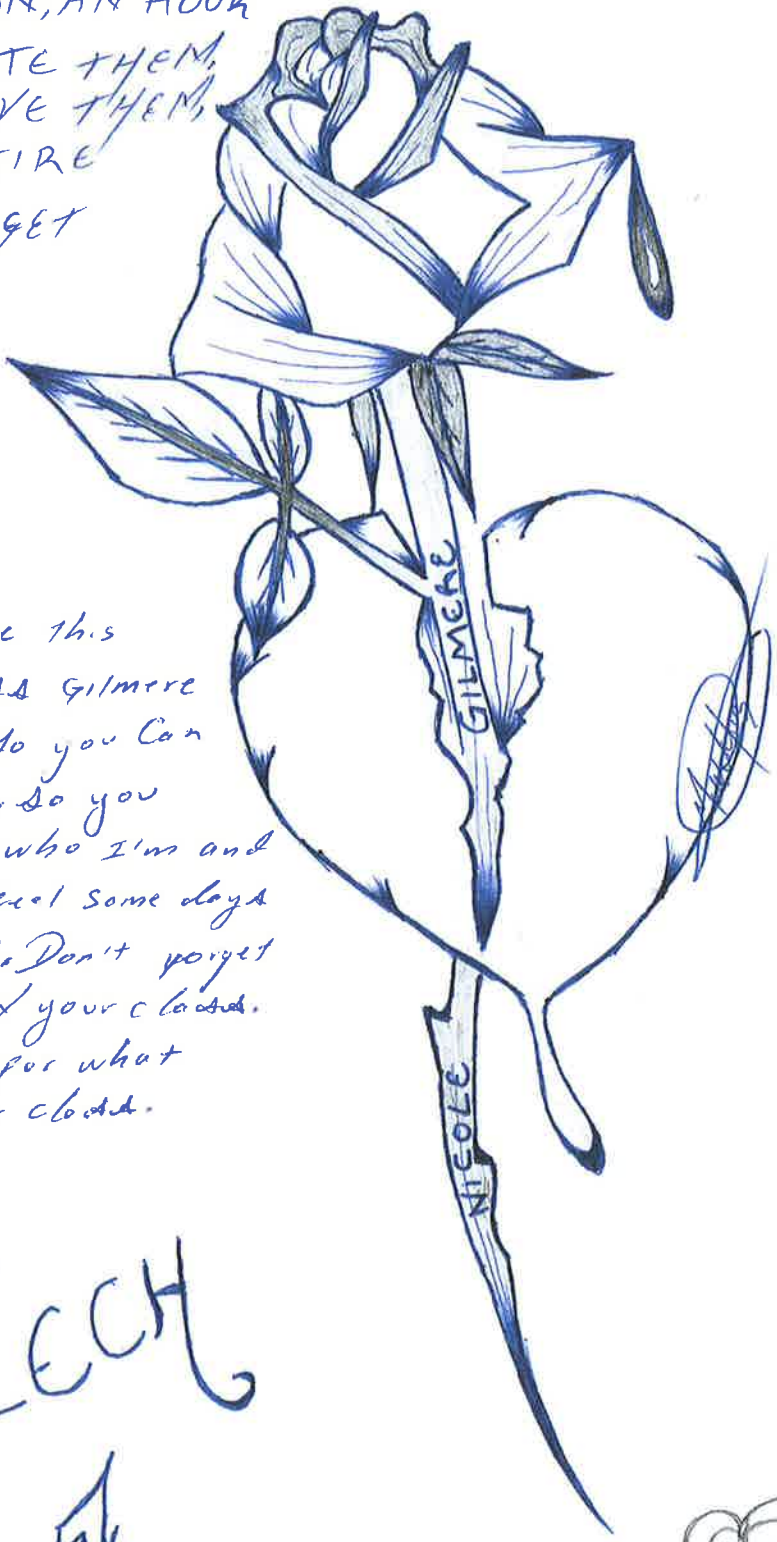 N, AN HOUR
TE THEM,
VE THEM,
TIRE
GET
e This
ss Gilmere
do you Can
so you
who I'm and
eel some days
Don't forget
your class.
for what
class.
GILMERE
NICOLE
ECH